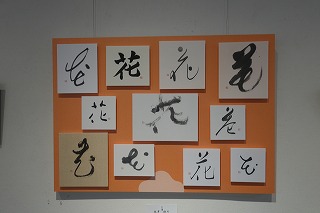 花 花 花 花
花 花 花
花 花 花 花